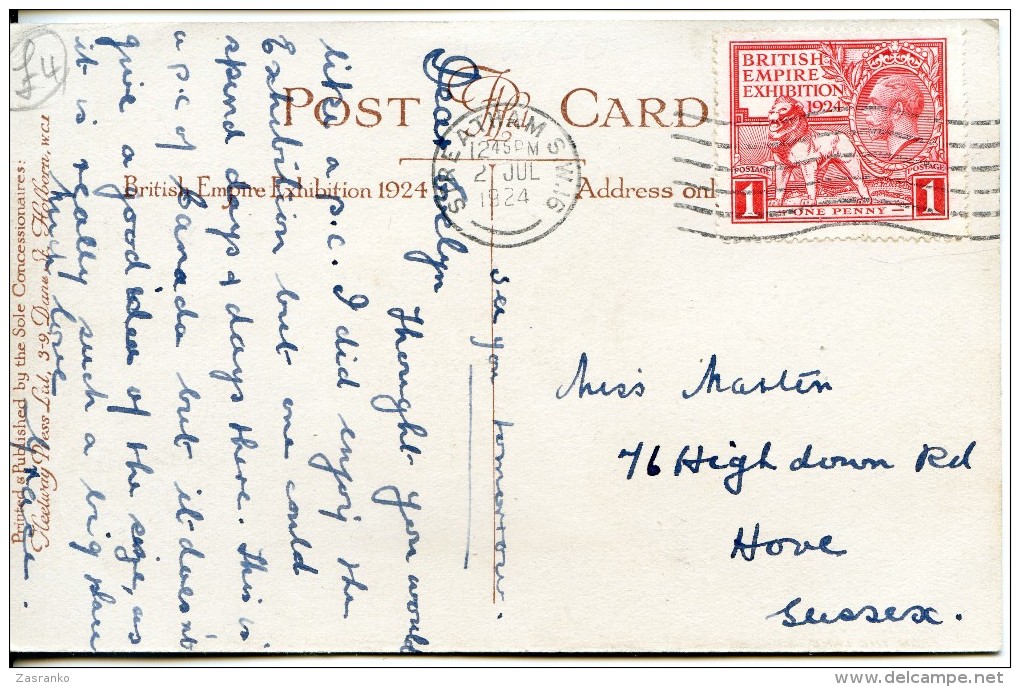 £4
POST CARD
British Empire Exhibition 1924
Address onl
Printed & Published by the Sole Concessionaires:
Fleetway Press Ltd, 3-9, Dane St. Holborn, W.C.1
STREATHAM S.W.16
12.45PM
2 JUL
1924
BRITISH
EMPIRE
EXHIBITION
1924
POSTAGE
POSTAGE
1
ONE PENNY
1
Dear
Thought you would
like a p.c. I did enjoy the
Exhibition but one could
spend days & days there. This is
a p.c of Canada but it doesn't
give a good idea of the size, as
it is really such a big place
love
See you tomorrow.
Miss Marten
76 Highdown Rd
Hove
Sussex.
Zasranko
delcampe.net